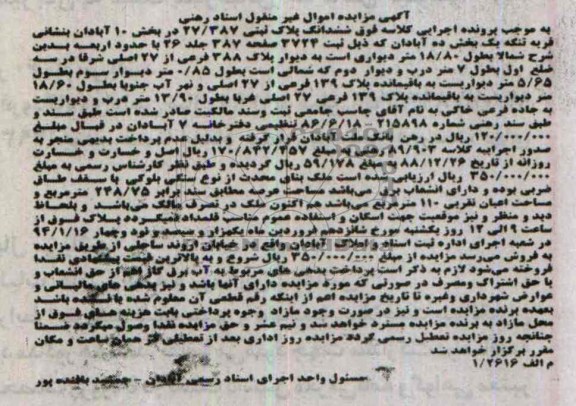 آگهی مزایده اموال غیر منقول اسناد رهنی
به موجب پرونده اجرایی کلاسه فوق ششدانگ پلاک ثبتی ۲۷/۳۸۷ در بخش ۱۰ آبادان بنشانی
قریه تنگه یک بخش ده آبادان که ذیل ثبت ۳۷۲۴ صفحه ۳۸۷ جلد ۲۶ با حدود اربعه بدین
شرح شمالا بطول ۱۸/۸۰ متر دیواری است به دیوار پلاک ۳۸۸ فرعی از ۲۷ اصلی شرقا در سه
ضلع اول بطول ۷ متر درب و دیوار دوم که شمالی است بطول ۰/۸۵ متر دیوار سوم بطول
۵/۶۵ متر دیواریست به باقیمانده پلاک ۱۳۹ فرعی از ۲۷ اصلی و نهر آب جنوبا بطول ۱۸/۶۰
متر دیواریست به باقیمانده پلاک ۱۳۹ فرعی ۲۷ اصلی غربا بطول ۱۳/۹۰ متر درب و دیواریست
به جاده فرعی خاکی به نام آقای حامی ثبت وسند مالکیت صادر شده است طبق سند و
طبق سند رهنی شماره ۲۱۵۸۹۸ ۸۶/۶/۱۸ تنظیمی دفترخانه ۷ آبادان در قبال مبلغ
۱۲۰/۰۰۰/۰۰۰ ریال در رهن بانک ملت آبادان قرار گرفته و بدلیل عدم پرداخت بدهی منجر به
صدور اجراییه کلاسه مبلغ ریال اصل و خسارت و خسارت
روزانه از تاریخ ۸۸/۱۲/۲۶ به مبلغ ۵۹/۱۷۸ ریال گردیده و طبق نظر کارشناس رسمی به مبلغ
۳۵۰/۰۰۰/۰۰۰ ریال ارزیابی شده است ملک بنای محدث از نوع بنایی بلوکی با سقف طاق
ضربی بوده و دارای انشعاب برق می باشد مساحت عرصه مطابق سند برابر ۲۴۸/۷۵ مترمربع و
مساحت اعیان تقریبی ۱۱۰ مترمربع می باشد هم اکنون ملک در تصرف مالک می باشد و بلحاظ
دید و منظر و نیز موقعیت جهت اسکان و استفاده عموم مناسب قلمداد میگردد پلاک فوق از
ساعت ۹ الی ۱۲ روز یکشنبه مورخ شانزدهم فروردین ماه یکهزار و سیصد و نود وچهار ۹۴/۱/۱۶
در شعبه اجرای اداره ثبت اسناد و املاک آبادان واقع در خیابان اروند ساحلی از طریق مزایده
به فروش می رسد مزایده از مبلغ ۳۵۰/۰۰۰/۰۰۰ ریال شروع و به بالاترین قیمت پیشنهادی نقدا
فروخته می شود لازم به ذکر است پرداخت بدهی های مربوط به آب برق گاز اعم از حق انشعاب و
یا حق اشتراک ومصرف در صورتی که مورد مزایده دارای آنها باشد و نیز بدهی های مالیاتی و
عوارض شهرداری وغیره تا تاریخ مزایده اعم از اینکه رقم قطعی آن معلوم شده یا نشده باشد
بعهده برنده مزایده است و نیز در صورت وجود مازاد وجوه پرداختی بابت هزینه های فوق از
محل مازاد به برنده مزایده مسترد خواهد شد و نیم عشر و حق مزایده نقدا وصول میگردد ضمنا
چنانچه روز مزایده تعطیل رسمی گردد مزایده روز اداری بعد از تعطیلی در همان ساعت و مکان
مقرر برگزار خواهد شد
م الف ۱/۲۶۱۶
مسئول واحد اجرای اسناد رسمی آبادان - جمشید پاینده پور